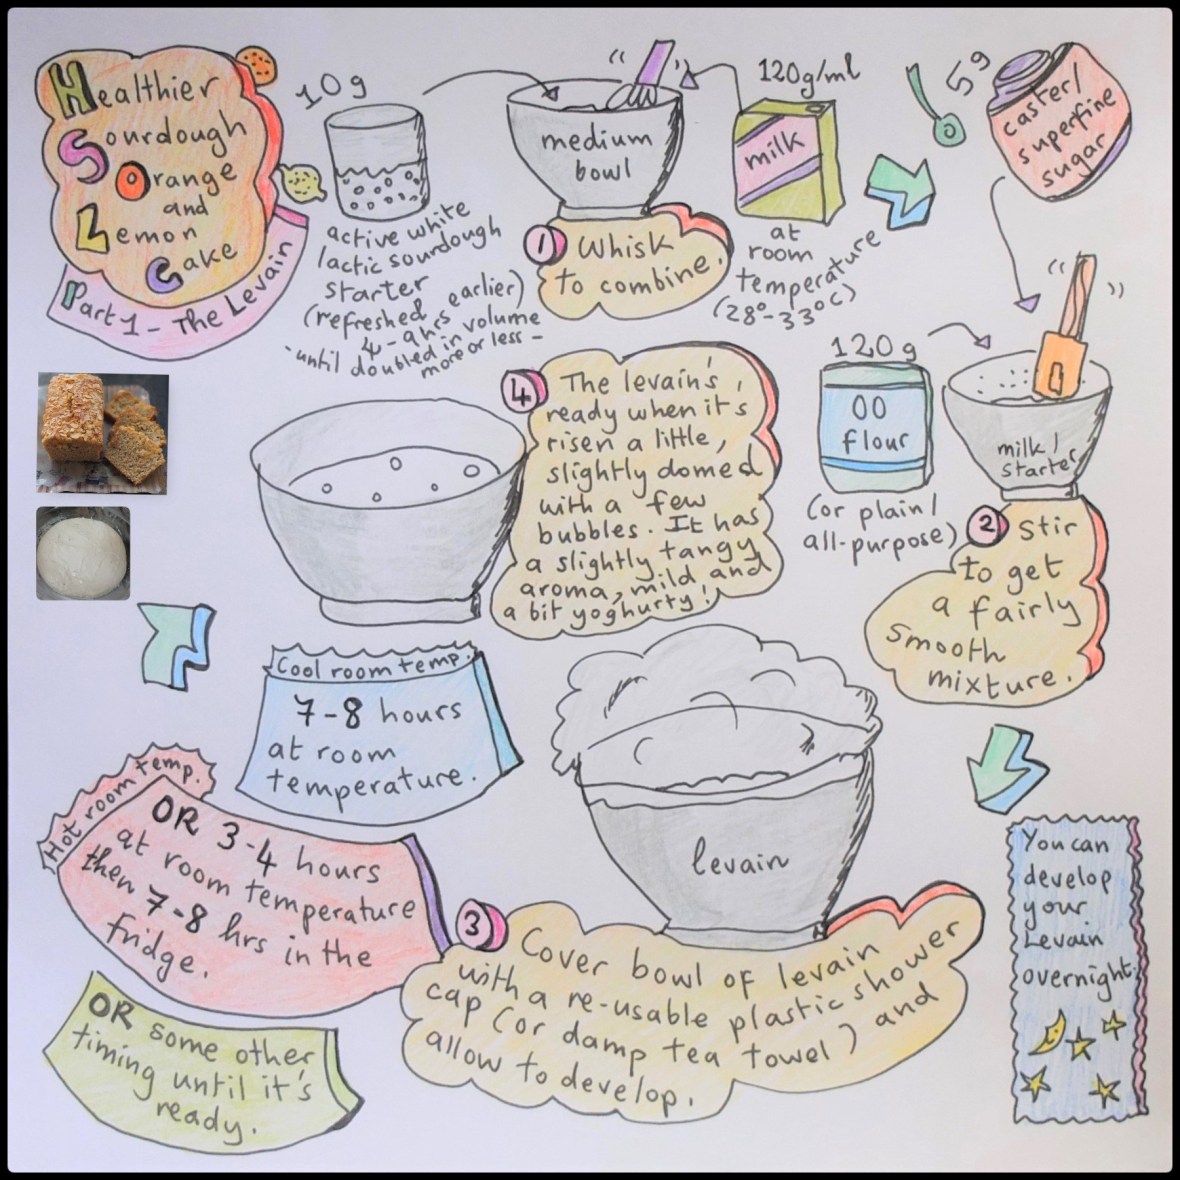 Healthier
Sourdough
Orange
and
Lemon
Cake
Part 1 - The Levain
10g
active white
lactic sourdough
starter
(refreshed earlier)
4-9hrs
-until doubled in volume
more or less-
medium
bowl
120g/ml
milk
at
room
temperature
(28°-33°C)
1 Whisk
to combine.
5g
caster/
superfine
sugar
120g
00
flour
(or plain/
all-purpose)
milk/
starter
2 Stir
to get
a fairly
smooth
mixture.
You can
develop
your
Levain
overnight.
levain
3 Cover bowl of levain
with a re-usable plastic shower
cap (or damp tea towel) and
allow to develop.
Cool room temp.
7-8 hours
at room
temperature.
Hot room temp.
OR 3-4 hours
at room temperature
then 7-8 hrs in the
fridge.
OR some other
timing until it's
ready.
4 The levain's
ready when it's
risen a little,
slightly domed
with a few
bubbles. It has
a slightly tangy
aroma, mild and
a bit yoghurty!